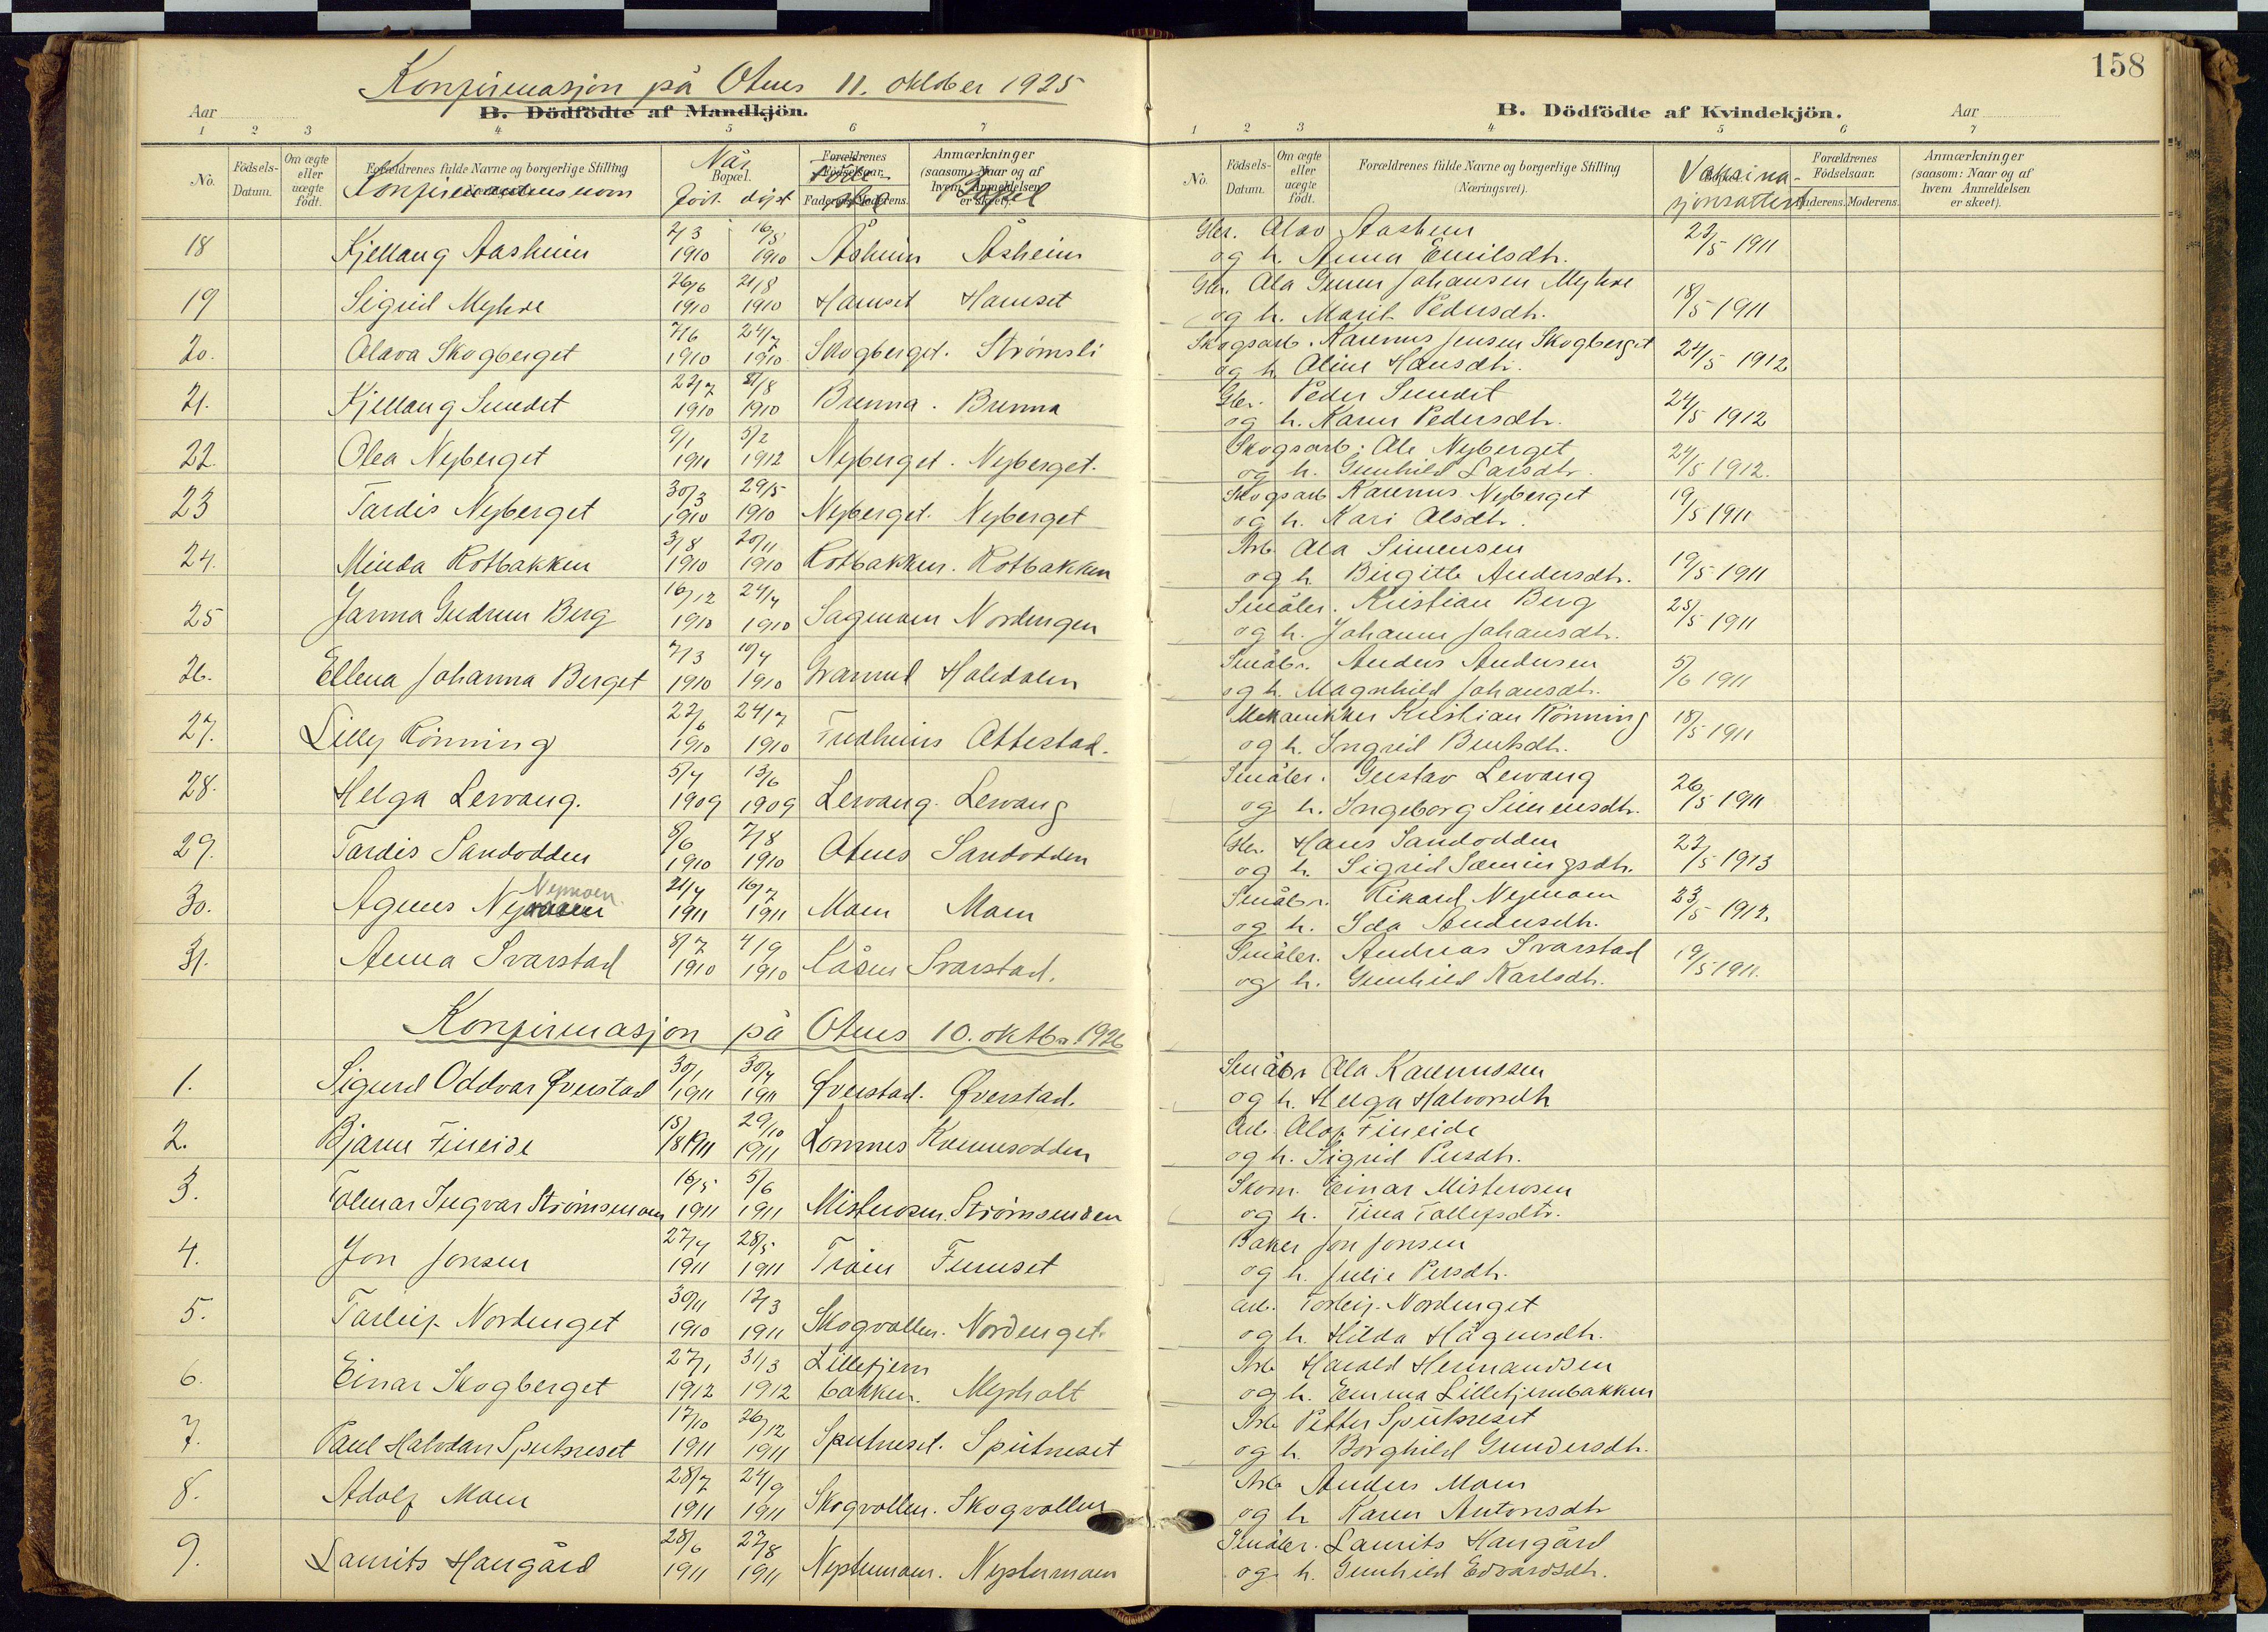 158
Konfirmasjon på Otnes 11. oktober 1925
Aar
B. Dödfödte af Mandkjön.
1 2 3 4 5 6 7
No.
Födsels-Datum.
Om ægte eller uægte født.
Forældrenes fulde Navne og borgerlige Stilling
Konfirmandens navn
Når
Bopæl.
født. døpt
Forældrenes Födselsaar.
Faderens. Moderens.
Anmærkninger (saasom: Naar og af hvem Anmeldelsen er skeet).
18 Kjellaug Aasheim 2/3 1910 16/5 1910 Åsheim Åsheim
19 Sigrid Myhre 26/6 1910 21/8 1910 Hamset Hamset
20. Olava Skogberget 7/6 1910 24/7 1910 Skogberget. Strømsli
21. Kjellaug Sundet 22/7 1910 /8 1910 Brenna. Brenna
22. Olea Nyberget 9/1 1911 5/2 1912 Nyberget. Nyberget.
23 Tordis Nyberget 30/3 1910 29/5 1910 Nyberget. Nyberget
24. Minda Rotbakken 3/8 1910 20/11 1910 Rotbakken. Rotbakken
25 Janna Gudrun Berg 16/12 1910 24/4 1910 Sagmoen Nordengen
26. Ellena Johanna Berget 7/3 1910 10/4 1910 Holidalen
27. Lilly Rönning 22/6 1910 24/7 1910 Attestad.
28. Helga Levang. 5/4 1909 13/6 1909 Levang. Levang
29. Tordis Sandodden 8/6 1910 7/8 1910 Otnes Sandodden
30. Agnes Nymoen Nymoen 21/4 1911 16/7 1911 Moen Moen
31. Anna Svarstad 8/7 1910 4/9 1910 Svarstad.
Konfirmasjon på Otnes 10. oktbr. 1926
1. Sigurd Oddvar Øverstad 30/1 1911 30/4 1911 Øverstad. Øverstad.
2. Bjarne Fineide 15/8 1911 29/10 1911 Lomnes Kvennsodden
3. Tolmar Ingvar Strømsmoen 16/5 1911 5/6 1911 Misterosen. Strømsenden
4. Jon Jonsen 27/4 1911 28/5 1911 Trøen Furuset
5. Torleif Nordenget 30/11 1910 12/3 1911 Skogvollen. Nordenget.
6. Einar Skogberget 27/1 1912 31/3 1912 Lilletjernbakken. Myrholt
7. Paul Halvdan Sputneset 17/10 1911 26/12 1911 Sputneset. Sputneset
8. Adolf Moen 28/7 1911 24/9 1911 Skogvollen. Skogvollen
9. Laurits Haugård 28/6 1911 27/8 1911 Nystumoen. Nystumoen
B. Dödfödte af Kvindekjön.
Aar
1 2 3 4 5 6 7
No.
Födsels-Datum.
Om ægte eller uægte födt.
Forældrenes fulde Navne og borgerlige Stilling (Næringsvei).
Vaksinasjonsattest
Forældrenes Födselsaar.
Faderens. Moderens.
Anmærkninger (saasom: Naar og af hvem Anmeldelsen er skeet).
Gbr. Olav Aasheim
og h. Anna Emilsdtr. 23/5 1911
Gbr. Ola Gunnar Johansen Myhre
og h. Marit Pedersdtr. 18/5 1911
Skogsarb. Karenus Jensen Skogberget
og h. Oline Hansdtr. 24/5 1912
Gbr. Peder Sundet
og h. Karen Pedersdtr. 24/5 1912
Skogsarb. Ole Nyberget
og h. Gunhild Larsdtr. 24/5 1912.
Skogsarb Karenus Nyberget
og h. Kari Olsdtr. 19/5 1911
Arb. Ola Simensen
og h. Birgitte Andersdtr. 19/5 1911
Småbr. Kristian Berg
og h. Johanne Johansdtr. 23/5 1911
Småbr. Anders Andersen
og h. Magnhild Johansdtr. 5/6 1911
Mekanikker Kristian Rönning
og h. Ingrid Berntsdtr. 18/5 1911
Småbr. Gustav Levang
og h. Ingeborg Simensdtr. 26/5 1911
Gbr. Hans Sandodden
og h. Sigrid Sæmingsdtr. 22/5 1913
Småbr. Rikard Nymoen
og h. Ida Andersdtr. 23/5 1912.
Småbr. Andreas Svarstad
og h. Gunhild Karlsdtr. 19/5 1911.
Småbr Ola Karenussen
og h. Helga Halvorsdtr
Arb. Olof Fineide
og h. Sigrid Persdtr.
Skom. Einar Misterosen
og h. Tina Tollefsdtr.
Baker Jon Jonsen
og h. Julie Persdtr.
Arb. Torleif Nordenget
og h. Hilda Hågensdtr.
Arb Harald Hermandsen
og h. Emma Lilletjernbakken
Arb Petter Sputneset
og h. Borghild Gundersdtr.
Arb Anders Moen
og h Karen Antonsdtr
Småbr. Laurits Haugård
og h. Gunhild Edvardsdtr.